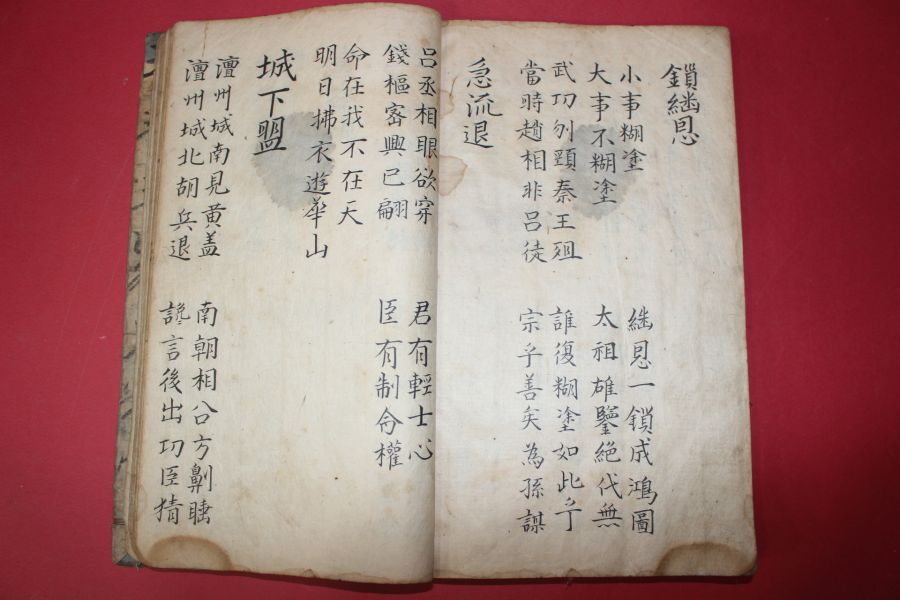 鎖継恩
小事糊塗
大事不糊塗
継恩一鎖成鴻圖
太祖雄鑒絕代無
武功刎頸秦王殂
當時趙相非呂徒
誰復糊塗如此乎
宗乎善矣為孫謀
急流退
呂丞相眼欲穿
錢樞密興已翩
君有輕士心
臣有制命權
命在我不在天
明日拂衣遊華山
城下盟
澶州城南見黃盖
澶州城北胡兵退
南朝相公方劓睡
讒言後出功臣猜